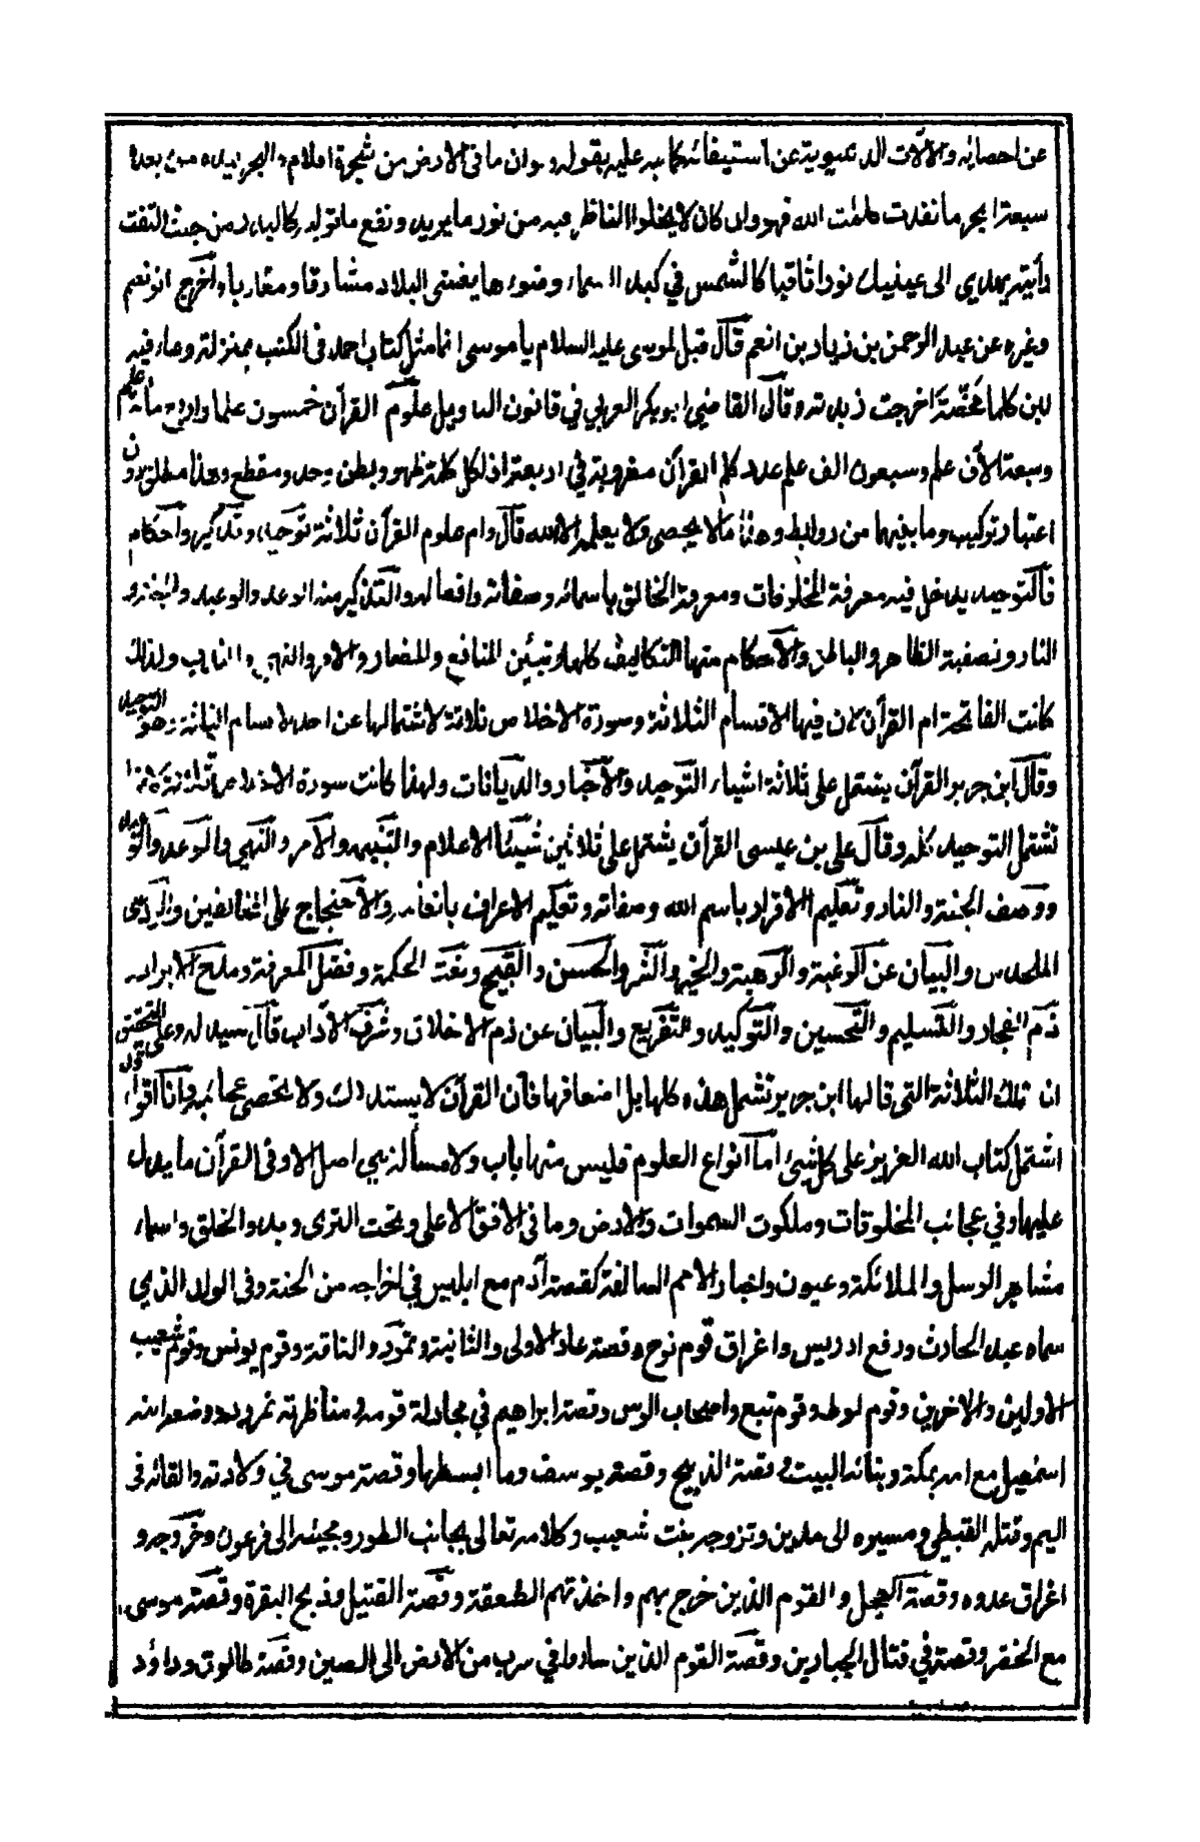 عن احصائه والآلات الدنيوية عن استيفائه كما نبه عليه بقوله ولو ان ما فى الارض من شجرة اقلام والبحر يمده من بعده
سبعة ابحر ما نفدت كلمات الله فهو وان كان لا يخلو الناظر فيه من نور ما يريه ونفع ما توليه كالبدر من حيث التفت
رأيته يهدي الى عينيك نورا ثاقبا كالشمس في كبد السماء وضوءها يغشى البلاد مشارقا ومغاربا واخرج ابو نعيم
وغيره عن عبد الرحمن بن زياد بن انعم قال قيل لموسى عليه السلام يا موسى انما مثل كتاب احمد فى الكتب بمنزلة وعاء فيه
لبن كلما مخضته اخرجت زبدته وقال القاضي ابو بكر العربي في قانون التاويل علوم القرآن خمسون علما واربع مائة علم
وسبعة الآف علم وسبعون الف علم عدد كلم القرآن مضروبة في اربعة اذ لكل كلمة ظهر وبطن وحد ومقطع وهذا مطلق دون
اعتبار تركيب وما بينهما من روابط وهذا مالا يحصى ولا يعلمه الا الله قال وام علوم القرآن ثلاثة توحيد وتذكير واحكام
فالتوحيد يدخل فيه معرفة المخلوقات ومعرفة الخالق باسمائه وصفاته وافعاله والتذكير منه الوعد والوعيد والجنة و
النار وتصفية الظاهر والباطن والاحكام منها التكاليف كلها وتبيين المنافع والمضار والامر والنهي والندب ولذلك
كانت الفاتحة ام القرآن لان فيها الاقسام الثلاثة وسورة الاخلاص ثلاثة لاشتمالها عن احد الاقسام الثلاثة وهو التوحيد
وقال ابن جرير القرآن يشتمل على ثلاثة اشياء التوحيد والاخبار والديانات ولهذا كانت سورة الاخلاص ثلثه لانها
تشتمل التوحيد كله وقال على بن عيسى القرآن يشتمل على ثلاثين شيئا الاعلام والتنبيه والامر والنهي والوعد والوعيد
ووصف الجنة والنار وتعليم الاقرار باسم الله وصفاته وتعليم الاعتراف بانعامه والاحتجاج على المخالفين والرد على
الملحدين والبيان عن الرغبة والرهبة والخير والشر والحسن والقبيح ونعت الحكمة وفضل المعرفة ومدح الابرار و
ذم الفجار والتسليم والتحسين والتوكيد والتقريع والبيان عن ذم الاخلاق وشرف الآداب قال شيدله وعلى التحقيق
ان تلك الثلاثة التى قالها ابن جرير تشمل هذه كلها بل اضعافها فان القرآن لا يستدرك ولا يحصى عجائبه وانا اقول
اشتمل كتاب الله العزيز على كل شيء اما انواع العلوم فليس منها باب ولا مسألة هي اصل الا وفى القرآن ما يدل
عليها وفي عجائب المخلوقات وملكوت السموات والارض وما فى الافق الاعلى وتحت الثرى وبدء الخلق واسماء
مشاهير الرسل والملائكة وعيون واخبار الامم السالفة كقصة آدم مع ابليس في اخراجه من الجنة وفى الولد الذي
سماه عبد الحارث ورفع ادريس واغراق قوم نوح وقصة عاد الاولى والثانية وثمود والناقة وقوم يونس وقوم شعيب
الاولين والاخرين وقوم لوط وقوم تبع واصحاب الرس وقصة ابراهيم في مجادلة قومه ومناظرته نمرود ووضعه ابنه
اسمعيل مع امه بمكة وبنائه البيت وقصة الذبيح وقصة يوسف وما ابسطها وقصة موسى في ولادته والقائه فى
اليم وقتله القبطى ومسيره الى مدين وتزوجه بنت شعيب وكلامه تعالى بجانب الطور ومجيئه الى فرعون وخروجه و
اغراق عدوه وقصة العجل والقوم الذين خرج بهم واخذتهم الصعقة وقصة القتيل وذبح البقرة وقصة موسى
مع الخضر وقصته في قتال الجبارين وقصة القوم الذين ساروا في سرب من الارض الى الصين وقصة طالوت وداؤد